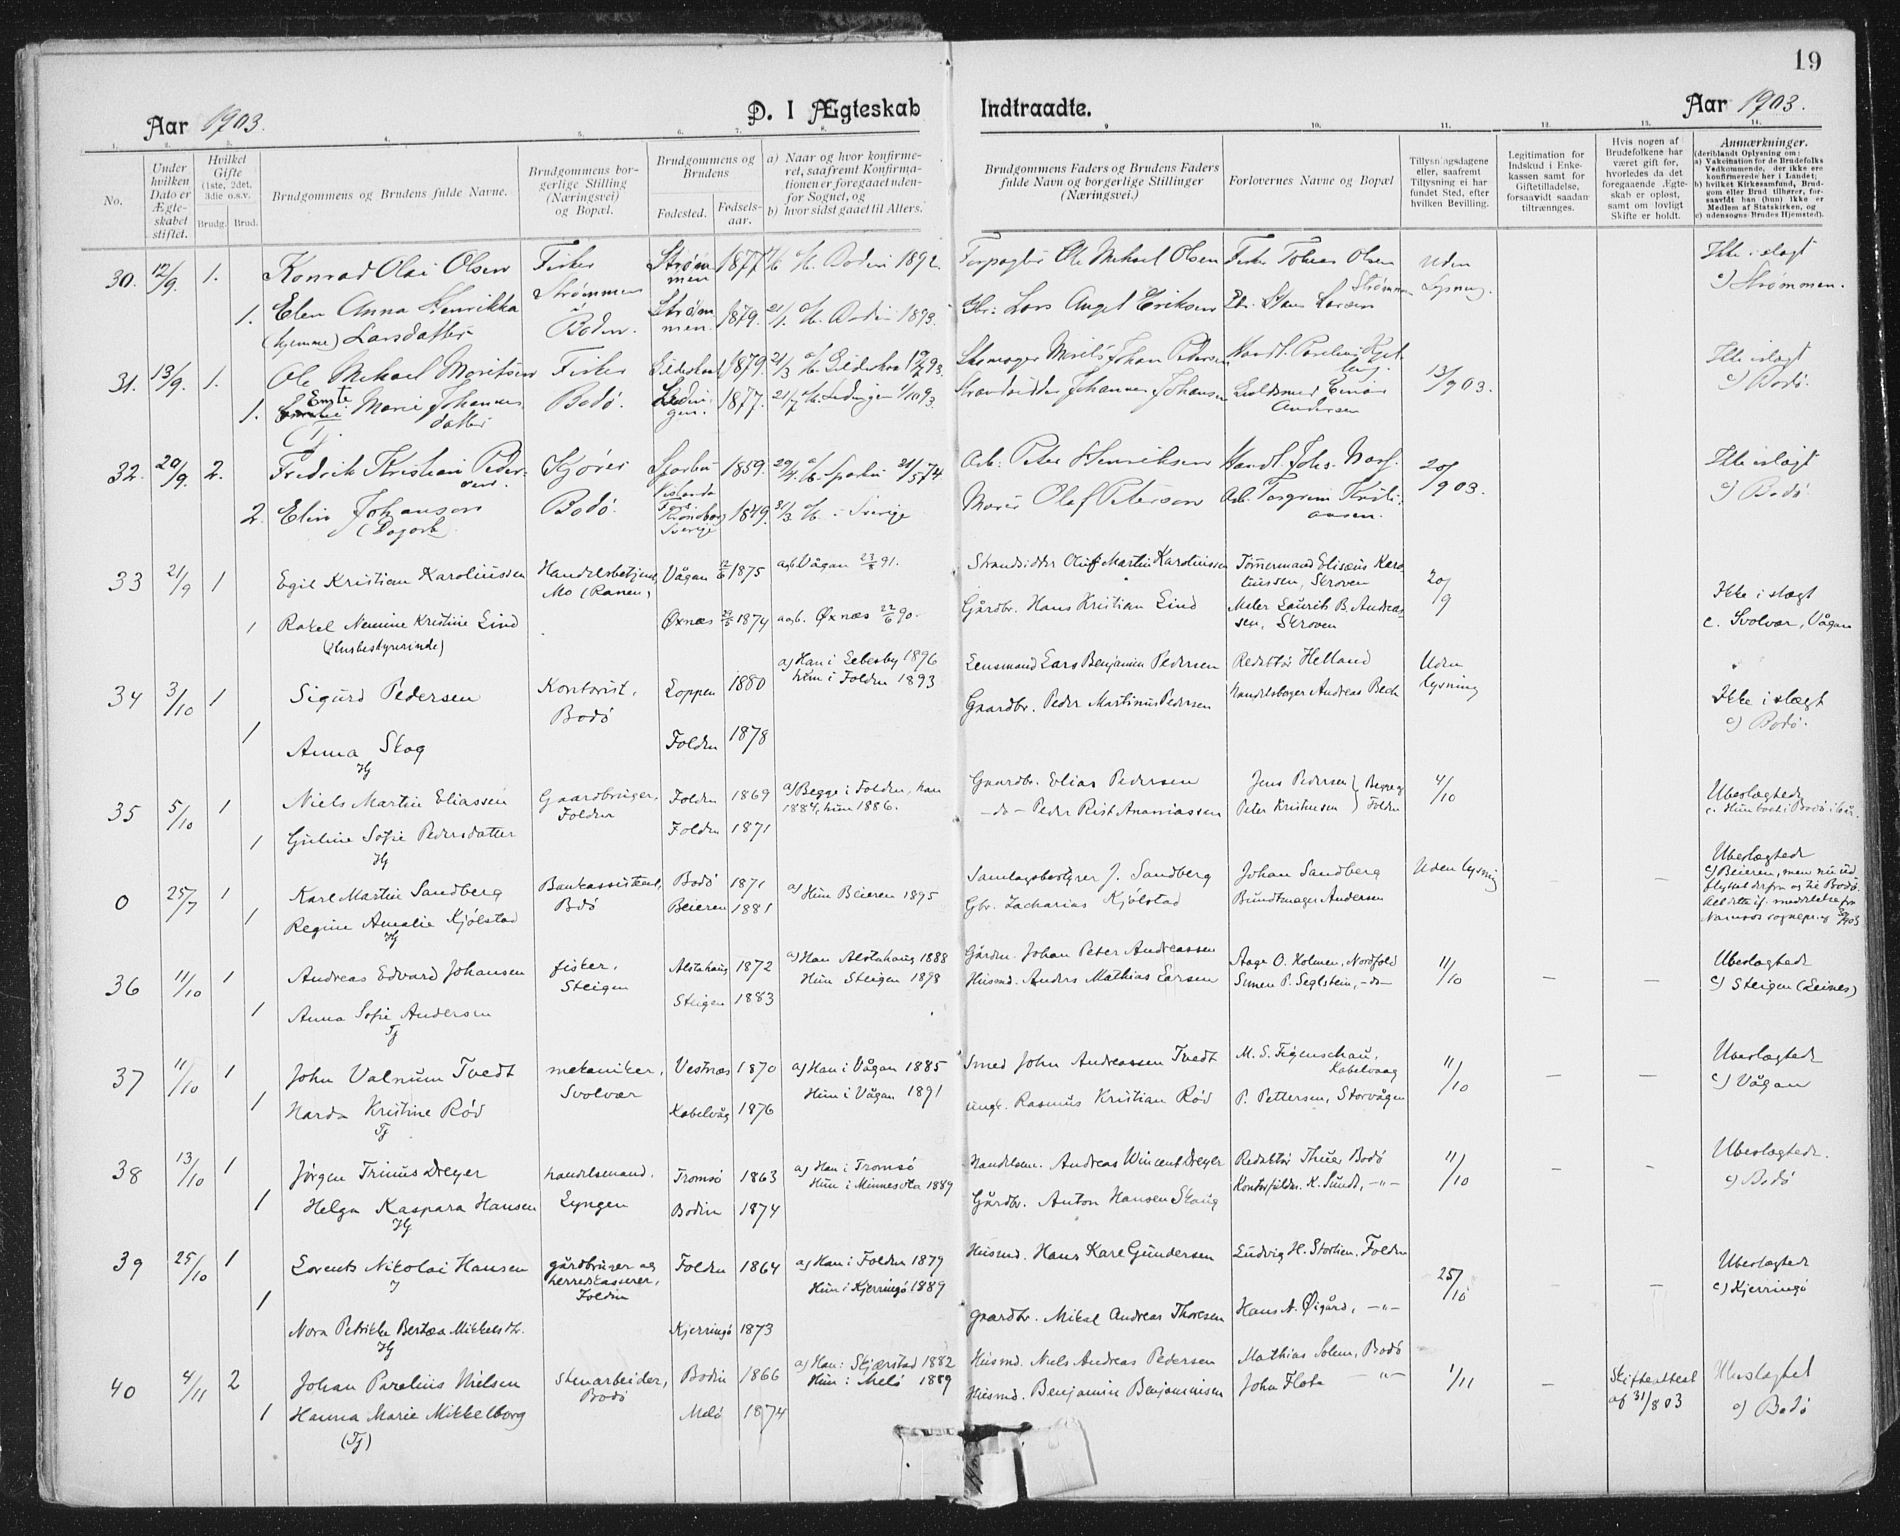 19
Aar 1903.
D. I Ægteskab
Indtraadte.
Aar 1903.
1. 2. 3. 4. 5. 6. 7. 8. 9. 10. 11. 12. 13. 14.
No.
Under hvilken Dato er Ægteskabet stiftet.
Hvilket Gifte (1ste, 2det, 3die o.s.v.
Brudg. Brud.
Brudgommens og Brudens fulde Navne.
Brudgommens borgerlige Stilling (Næringsvei) og Bopæl.
Brudgommens og Brudens
Fødested. Fødselsaar.
a) Naar og hvor konfirmeret, saafremt Konfirmationen er foregaaet udenfor Sognet, og
b) hvor sidst gaaet til Alters.
Brudgommens Faders og Brudens Faders fulde Navn og borgerlige Stillinger (Næringsvei.)
Forlovernes Navne og Bopæl
Tillysningsdagene eller, saafremt Tillysning ei har fundet Sted, efter hvilken Bevilling.
Legitimation for Indskud i Enkekassen samt for Giftetilladelse, forsaavidt saadan tiltrænges.
Hvis nogen af Brudefolkene har været gift før, hvorledes da det foregaaende Ægteskab er opløst, samt om lovligt Skifte er holdt.
Anmærkninger.
(deriblandt Oplysning om:
a) Vakcination for de Brudefolks Vedkommende, der ikke ere konfirmerede her i Landet;
b) hvilket Kirkesamfund, Brudgom eller Brud tilhører, forsaavidt han (hun) ikke er Medlem af Statskirken, og
c) udensogns Brudes Hjemsted).
30. 12/9. 1. Konrad Olai Olsen Fisker Strømmen 1877 Bodin 1892. Ole Mikael Olsen Fisker Tobias Olsen Uden Ikke i slægt
Strømmen Strømmen Lysning. c) Strømmen.
1. Elen Anna Henrikka Bodin. Strømmen. 1879. Bodin 1893. Lars Angel Eriksen Larsen
(hjemme) Larsdatter
31. 13/9. 1. Ole Mikael Moritsen Fisker Gildeskaal 1879. 21/3 Gildeskaal Johan Pedersen Handl. 13/9 03. Ikke i slægt
1. Marie Johannesdatter Bodø. 1877. Johannes Johansen Guldsmed Einar Andersen c) Bodø.
32. 20/9. 2. Fredrik Kristian Pedersen. Kjører Sparbu 1859. Sparbu Arb. Peter Henriksen Handl. Johs. 20/9 03. Ikke i slægt
2. Elin Johanson Bodø. Sverige 1849. Sverige Murer Olaf Peterson Arb. Torgrim Kristiansen. c) Bodø.
33 21/9 1 Egil Kristian Karoliussen Handelsbetjent Vågan 1875 Vågan 23/8 91. Strandsidder Oluf Martin Karoliussen Tømmermand Eliseus Karoliussen, Skroven 20/9 Ikke i slægt
Mo (Ranen)
1 Rakel Nemine Kristine Lind Øxnæs 1874 Øxnæs 22/6 90. Gårdbr. Hans Kristian Lind Maler Laurits B. Andreassen, Skroven c. Svolvær, Vågan
(Husbestyrerinde)
34 3/10 1 Sigurd Pedersen Kontorist, Loppen 1880 a) Han i Lebesby 1896 Lensmand Lars Benjamin Pedersen Redaktør Helland Uden lysning Ikke i slægt
Bodø hun i Folden 1893
1 Anna Skog Folden 1878 Gaardbr. Peder Martinus Pedersen Handelsborger Andreas Bech c) Bodø.
Hj
35 5/10 1 Niels Martin Eliassen Gaardbruger, Folden 1869 a) Begge i Folden, han Gaardbr. Elias Pedersen Jens Pedersen Begge af 4/10 Ubeslægtede
Folden 1884, hun 1886.
1 Guline Sofie Pedersdatter Folden 1871 -do- Peder Rist Ananiassen Peter Kristensen Folden
Hj
0 25/7 1 Karl Martin Sandberg Bankassistent, Bodø 1871 a) Hun Beieren 1895 Samlagsbestyrer J. Sandberg Johan Sandberg Uden lysning Ubeslægtede
Bdø c) Beieren, men nu udflyttet derfra og til Bodø.
1 Regine Amalie Kjølstad Beieren 1881 Gbr. Zacharias Kjølstad Bundtmager Andersen
Hj
36 11/10 1 Andreas Edvard Johansen fisker, Alstahaug 1872 a) Han Alstahaug 1888 Gårdm. Johan Peter Andreassen Aage O. Holmen, Nordfold 11/10 Ubeslægtede
Steigen Hun Steigen 1898
1 Anna Sofie Andersen Steigen 1883 Husmd. Anders Mathias Larsen Simen P. Seglstein, -do- c) Steigen (Leines)
Tj
37 11/10 1 John Valnum Tvedt mekaniker, Vestnæs 1870 a) Han i Vågan 1885 Smed John Andreassen Tvedt M. S. Figenschau, Kabelvaag 11/10 Ubeslægtede
Svolvær Hun i Vågan 1891
1 Harda Kristine Rød Kabelvåg 1876 Rasmus Kristian Rød P. Pettersen, Storvågen c) Vågan
Tj
38 13/10 1 Jørgen Trinus Dreyer handelsmand, Tromsø 1863 a) Han i Tromsø Handelsm. Andreas Wincent Dreyer Redaktør Thue Bodø 11/10 Ubeslægtede.
Lyngen Hun i Minnesota 1889
1 Helga Kaspara Hansen Bodin 1874 Gårdbr. Anton Hansen Skaug K. Sundt, -"- c) Bodø
Hj
39 25/10 1 Lorents Nikolai Hansen gårdbruger og Folden 1864 a) Han i Folden 1879 Husmd. Hans Karl Gundersen Ludvig H. Storlien, Folden 25/10 Ubeslægtede
herredkasserer, Hun i Kjerringø 1889
Folden
1 Nora Petrikke Bertea Mikkelsdtr. Kjerringø 1873 Gaardbr. Mikal Andreas Thoresen Hans N. Øigård, -"- c) Kjerringø
Hj
40 4/11 2 Johan Parelius Nielsen stenarbeider, Bodin 1866 a) Han: Skjærstad 1882 Husmd. Niels Andreas Pedersen Mathias Solem, Bodø 1/11 Skifteattest Ubeslægtet
Bodø Hun: Melø 1889
1 Hanna Marie Mikkelborg Melø 1874 Husmd. Benjamin Benjaminsen John Flota -"- af 31/8 03 c) Bodø
(Tj)